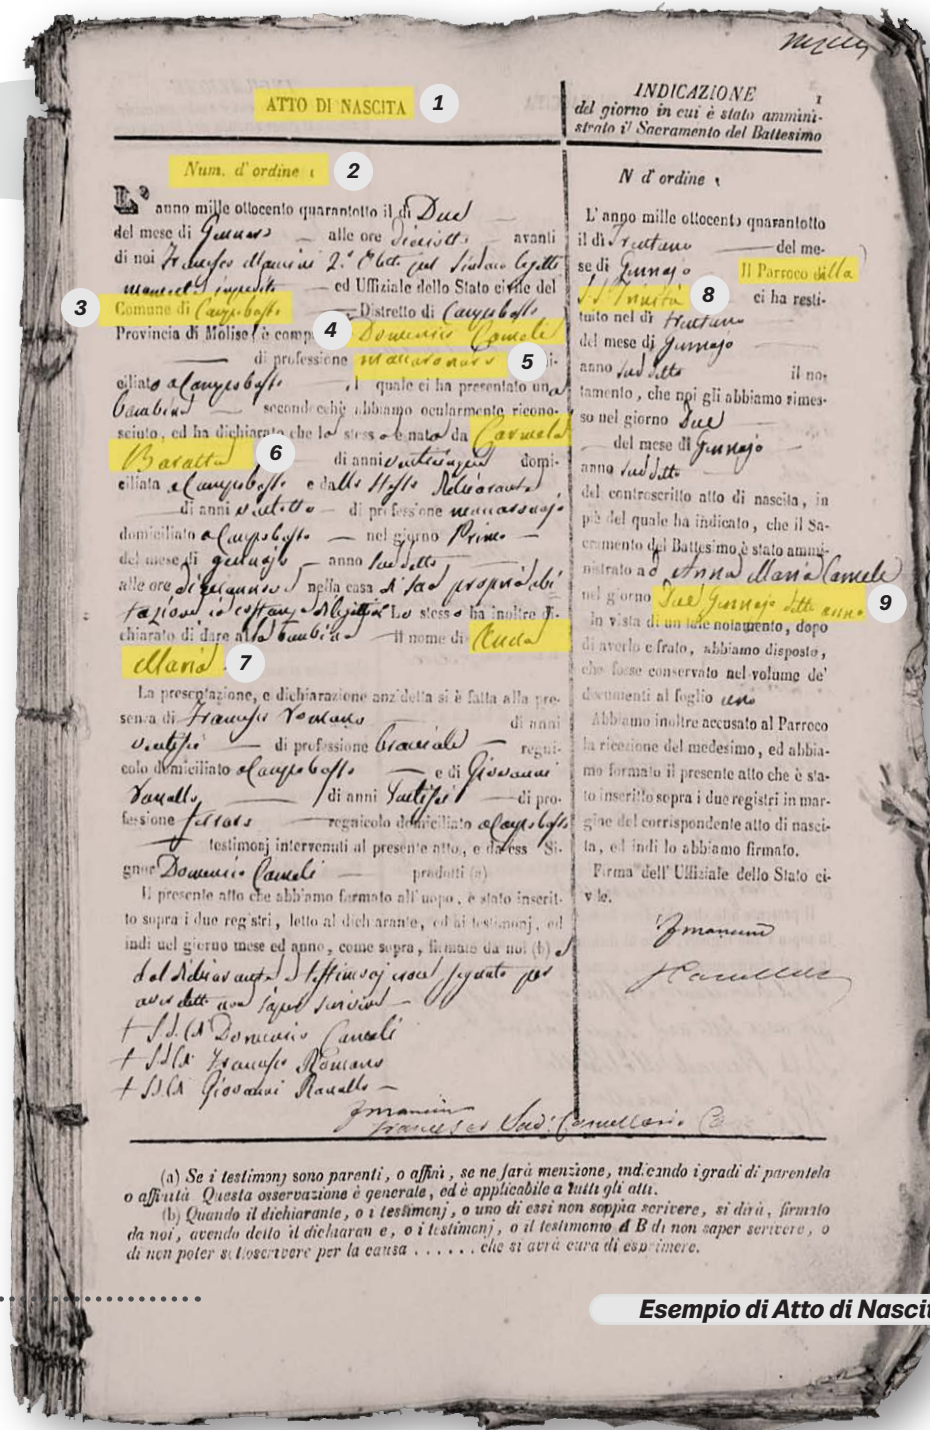 ATTO DI NASCITA
1
Num. d'ordine 1
2
L'anno mille ottocento quarantotto il dì Due
del mese di Gennaro alle ore diciotto avanti
di noi Francesco Mancini 2.° Eletto pel Sindaco
ed Uffiziale dello Stato civile del
3
Comune di Campobasso Distretto di Campobasso
Provincia di Molise, è comp
4
Domenico Cameli
di professione maccaronaro
5
ciliato a Campobasso il quale ci ha presentato una
bambina secondecchè abbiamo ocularmente ricono-
sciuto, ed ha dichiarato che la stessa è nata da Carmela
Baratta
6
di anni venticinque domi-
ciliata a Campobasso e dallo stesso dichiarante
di anni ventotto di professione maccaronajo
domiciliato a Campobasso nel giorno Primo
del mese di gennajo anno suddetto
alle ore nella casa di sua propria abi
tazione Lo stesso ha inoltre di-
chiarato di dare alla bambina il nome di Anna
Maria
7
La presentazione, e dichiarazione anzidetta si è fatta alla pre-
senza di Francesco Romano di anni
di professione bracciale regni-
colo domiciliato a Campobasso e di Giovanni
Ranallo di anni di pro-
fessione ferraro regnicolo domiciliato a Campobasso
testimonj intervenuti al presente atto, e da ess Si-
gnor Domenico Cameli prodotti (a)
Il presente atto che abbiamo formato all'uopo, è stato inserit-
to sopra i due registri, letto al dichiarante, ed ai testimonj, ed
indi nel giorno mese ed anno, come sopra, firmato da noi (b) e
dal dichiarante e testimonj croce segnato per
aver detto non saper scrivere
Domenico Cameli
Francesco Romano
Giovanni Ranallo
FMancini
INDICAZIONE
1
del giorno in cui è stato ammini-
strato il Sacramento del Battesimo
N d'ordine 1
L'anno mille ottocento quarantotto
il dì Trentuno del me-
se di Gennajo Il Parroco della
SS. Trinità
8
ci ha resti-
tuito nel dì trentuno
del mese di Gennajo
anno suddetto il no-
tamento, che noi gli abbiamo rimes-
so nel giorno Due
del mese di Gennajo
anno suddetto
del controscritto atto di nascita, in
piè del quale ha indicato, che il Sa-
cramento del Battesimo è stato ammi-
nistrato ad Anna Maria Cameli
nel giorno Due Gennajo detto anno
9
In vista di un tale notamento, dopo
di averlo cifrato, abbiamo disposto,
che fosse conservato nel volume de'
documenti al foglio uno
Abbiamo inoltre accusato al Parroco
la ricezione del medesimo, ed abbia-
mo formato il presente atto che è sta-
to inscritto sopra i due registri in mar-
gine del corrispondente atto di nasci-
ta, ed indi lo abbiamo firmato.
Firma dell' Uffiziale dello Stato ci-
vile.
FMancini
(a) Se i testimonj sono parenti, o affini, se ne farà menzione, indicando i gradi di parentela
o affinità Questa osservazione è generale, ed è applicabile a tutti gli atti.
(b) Quando il dichiarante, o i testimonj, o uno di essi non sappia scrivere, si dirà, firmato
da noi, avendo detto il dichiaran e, o i testimonj, o il testimonio A B di non saper scrivere, o
di non poter sottoscrivere per la causa . . . . . . che si avrà cura di esprimere.
Esempio di Atto di Nascit